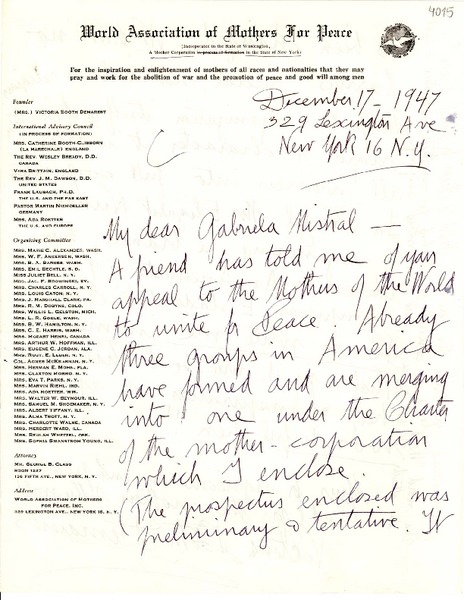 4015
World Association of Mothers For Peace
(Incorporated in the State of Washington,
A Mother Corporation in process of formation in the State of New York)
For the inspiration and enlightenment of mothers of all races and nationalities that they may
pray and work for the abolition of war and the promotion of peace and good will among men
December 17 - 1947
329 Lexington Ave
New York 16 N.Y.
Founder
(MRS.) VICTORIA BOOTH DEMAREST
International Advisory Council
(IN PROCESS OF FORMATION)
MRS. CATHERINE BOOTH-CLIBBORN
(LA MARECHALE) ENGLAND
THE REV. WESLEY BREADY, D.D.
CANADA
VERA BRITTAIN, ENGLAND
THE REV. J. M. DAWSON, D.D.
UNITED STATES
FRANK LAUBACH, PH.D.
THE U.S. AND THE FAR EAST
PASTOR MARTIN NIEMOELLER
GERMANY
MRS. ADA ROETTER
THE U.S. AND EUROPE
Organizing Committee
MRS. MARIE C. ALEXANDER, WASH.
MRS. W. F. ANDERSEN, WASH.
MRS. B. A. BARBEE, WASH.
MRS. EMIL BECHTLE, S. D.
MISS JULIET BELL, N. Y.
MRS. CHARLES CARROLL, N. Y.
MRS. LOUIS CATON, N. Y.
MRS. J. MARSHALL CLARK, PA.
MRS. WILLIS L. GELSTON, MICH.
MRS. L. R. GOOLE, WASH.
MRS. R. W. HAMILTON, N. Y.
MRS. C. E. HARRIS, WASH.
MRS. MOZART HENRI, CANADA
MRS. ARTHUR W. HOFFMAN, ILL.
MRS. EUGENE C. JORDAN, ALA.
MRS. RUDY E. LUNDI, N. Y.
COL. AGNES MCKERNAN, N. Y.
MRS. HERMAN E. MOHS, FLA.
MRS. CLAXTON MONRO, N. Y.
MRS. EVA T. PARKS, N. Y.
MRS. MARVIN RIEHL, IND.
MRS. ADA ROETTER, WIS.
MRS. WALTER W. SEYMOUR, ILL.
MRS. SAMUEL M. SHOEMAKER, N. Y.
MRS. ALBERT TIFFANY, ILL.
MRS. ALMA TROTT, N. Y.
MRS. CHARLOTTE WALNE, CANADA
MRS. HERBERT WARD, ILL.
MRS. BEULAH WHETZEL, ORE.
MRS. SOPHIA SWANSTROM YOUNG, ILL.
Attorney
MR. GEORGE B. CLASS
ROOM 1227
120 FIFTH AVE., NEW YORK, N. Y.
Address
WORLD ASSOCIATION OF MOTHERS
FOR PEACE, INC.
329 LEXINGTON AVE., NEW YORK 16, N. Y.
My dear Gabriela Mistral —
A friend has told me of your
appeal to the Mothers of the World
to unite for Peace. Already
three groups in America
have formed and are merging
into one under the Charter
of the mother-corporation
which I enclose.
(The prospectus enclosed was
preliminary & tentative. It